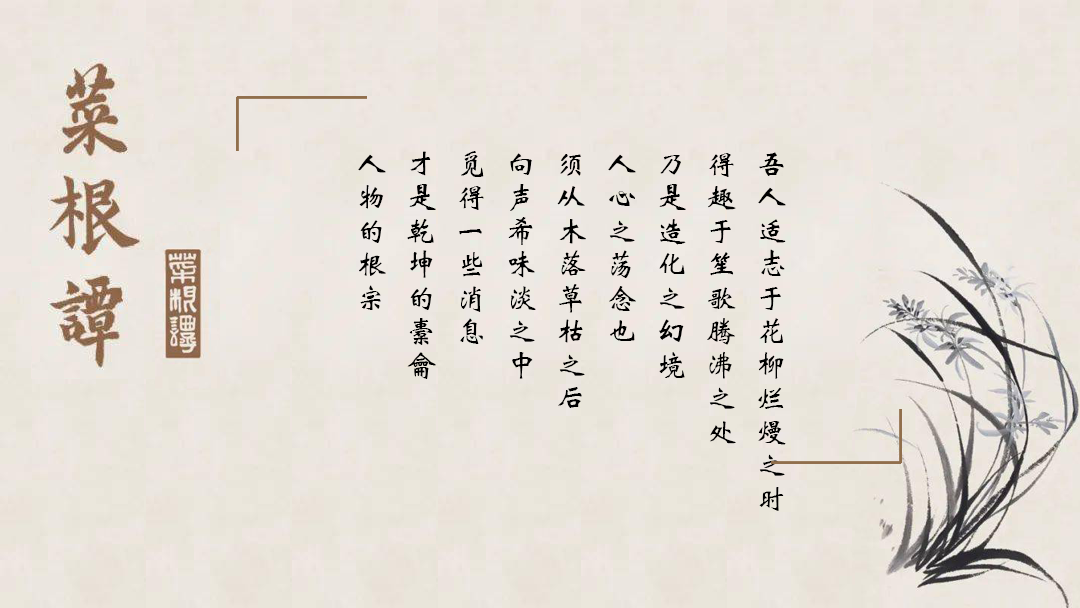 吾人适志于花柳烂熳之时
得趣于笙歌腾沸之处
乃是造化之幻境
人心之荡念也
须从木落草枯之后
向声希味淡之中
觅得一些消息
才是乾坤的橐龠
人物的根宗
菜根譚
菜根譚